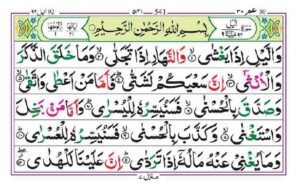 بِسْمِ اللّٰهِ الرَّحْمٰنِ الرَّحِيْمِ
وَالَّيْلِ اِذَا يَغْشٰى وَالنَّهَارِ اِذَا تَجَلّٰى وَمَا خَلَقَ الذَّكَرَ
وَالْاُنْثٰى اِنَّ سَعْيَكُمْ لَشَتّٰى فَاَمَّا مَنْ اَعْطٰى وَاتَّقٰى
وَصَدَّقَ بِالْحُسْنٰى فَسَنُيَسِّرُهٗ لِلْيُسْرٰى وَاَمَّا مَنْۢ بَخِلَ
وَاسْتَغْنٰى وَكَذَّبَ بِالْحُسْنٰى فَسَنُيَسِّرُهٗ لِلْعُسْرٰى
وَمَا يُغْنِيْ عَنْهُ مَالُهٗٓ اِذَا تَرَدّٰى اِنَّ عَلَيْنَا لَلْهُدٰى